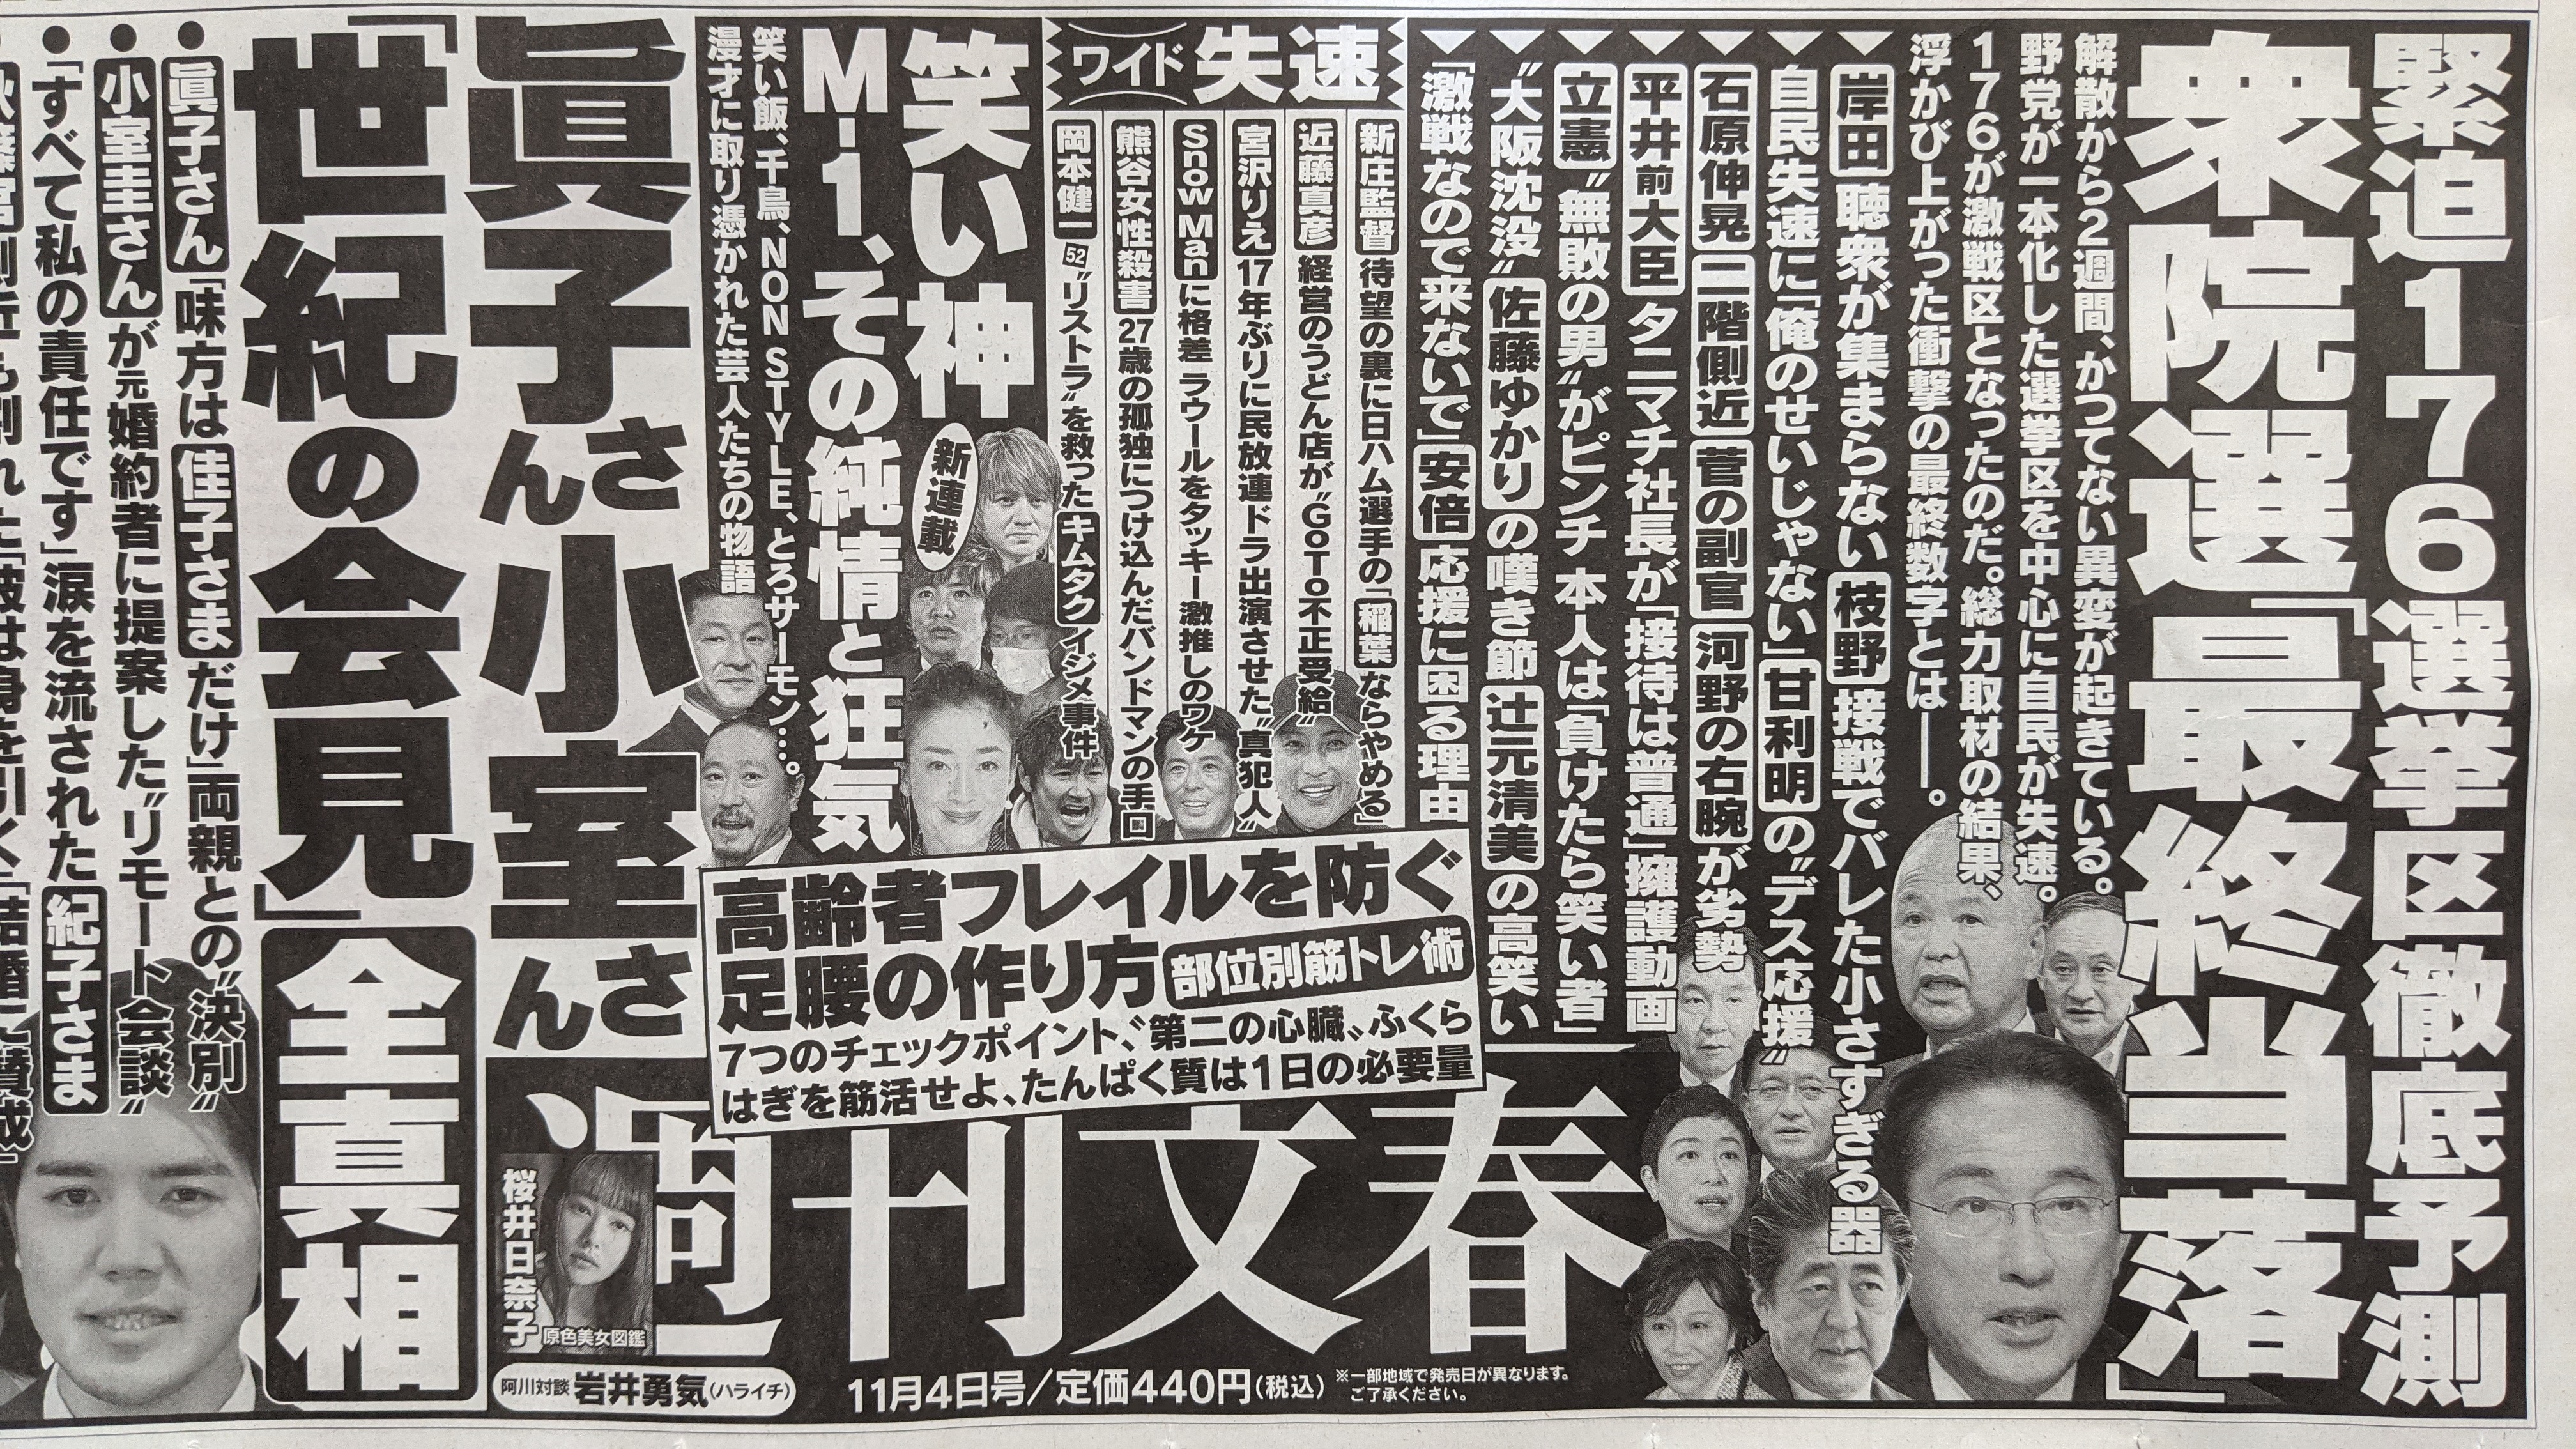 緊迫176選挙区徹底予測
衆院選「最終当落」
解散から2週間、かつてない異変が起きている。
野党が一本化した選挙区を中心に自民が失速。
176が激戦区となったのだ。総力取材の結果、
浮かび上がった衝撃の最終数字とは――。
岸田 聴衆が集まらない 枝野 接戦でバレた小さすぎる器
自民失速に「俺のせいじゃない」甘利明の〝デス応援〟
石原伸晃 二階側近 菅の副官 河野の右腕が劣勢
平井前大臣 タニマチ社長が「接待は普通」擁護動画
立憲〝無敗の男〟がピンチ 本人は「負けたら笑い者」
〝大阪沈没〟佐藤ゆかりの嘆き節 辻元清美の高笑い
「激戦なので来ないで」安倍応援に困る理由
ワイド 失速
新庄監督 待望の裏に日ハム選手の「稲葉ならやめる」
近藤真彦 経営のうどん店が〝GoTo不正受給〟
宮沢りえ 17年ぶりに民放連ドラ出演させた〝真犯人〟
Snow Manに格差 ラウールをタッキー激推しのワケ
熊谷女性殺害 27歳の孤独につけ込んだバンドマンの手口
岡本健一52〝リストラ〟を救ったキムタクイジメ事件
笑い神
新連載
M-1、その純情と狂気
笑い飯、千鳥、NON STYLE、とろサーモン…。
漫才に取り憑かれた芸人たちの物語
高齢者フレイルを防ぐ
足腰の作り方 部位別筋トレ術
7つのチェックポイント、〝第二の心臓〟ふくら
はぎを筋活せよ、たんぱく質は1日の必要量
眞子さん小室さん
「世紀の会見」全真相
●眞子さん「味方は佳子さまだけ」両親との〝決別〟
●小室圭さんが元婚約者に提案した〝リモート会談〟
●「すべて私の責任です」涙を流された紀子さま
週刊文春
桜井日奈子
原色美女図鑑
阿川対談 岩井勇気(ハライチ)
11月4日号/定価440円(税込)
※一部地域で発売日が異なります。
ご了承ください。